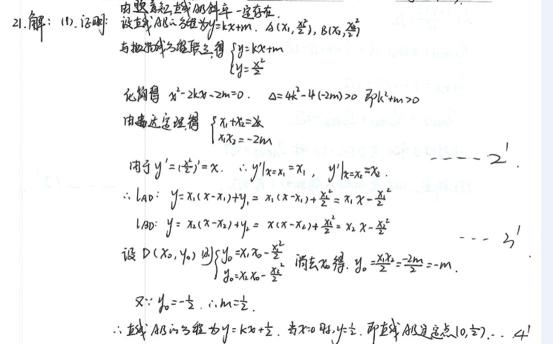 由题意知,直线AB斜率一定存在.
21.解: (1).证明: 设直线AB的方程为y=kx+m. A(x₁,x₁²/2), B(x₂,x₂²/2)
与抛物线方程联立,得 {y=kx+m
y=x²/2
化简得 x²-2kx-2m=0. Δ=4k²-4(-2m)>0 即k²+m>0
由韦达定理得 {x₁+x₂=2k
x₁x₂=-2m
由于 y'=(x²/2)'=x. ∴y'|x=x₁=x₁, y'|x=x₂=x₂. ----2'
∴lAD: y=x₁(x-x₁)+y₁=x₁(x-x₁)+x₁²/2=x₁x-x₁²/2
lBD: y=x₂(x-x₂)+y₂=x(x-x₂)+x₂²/2=x₂x-x₂²/2 ---3'
设D(x₀,y₀) 则{y₀=x₁x₀-x₁²/2
y₀=x₂x₀-x₂²/2 消去x₀得. y₀=x₁x₂/2=-2m/2=-m.
又∵y₀=-1/2. ∴m=1/2.
∴直线AB的方程为y=kx+1/2. 当x=0时,y=1/2. 即直线AB过定点(0,1/2)...4'